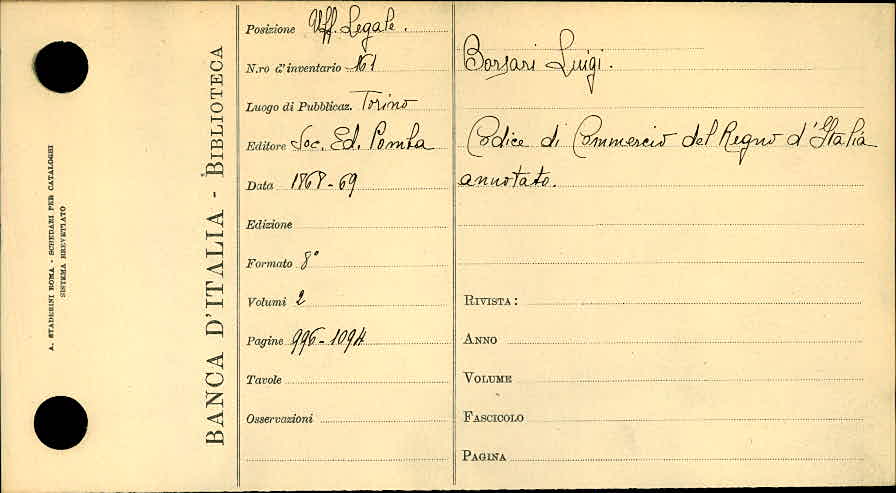 A. STADERINI ROMA - SCHEDARI PER CATALOGHI
SISTEMA BREVETTATO
BANCA D'ITALIA - BIBLIOTECA
Posizione Uff. Legale.
N.ro d'inventario 161
Luogo di Pubblicaz. Torino
Editore Soc. Ed. Pomba
Data 1868-69
Edizione
Formato 8°
Volumi 2
Pagine 996-1094
Tavole
Osservazioni
Borsari Luigi.
Codice di Commercio del Regno d'Italia
annotato.
RIVISTA:
ANNO
VOLUME
FASCICOLO
PAGINA